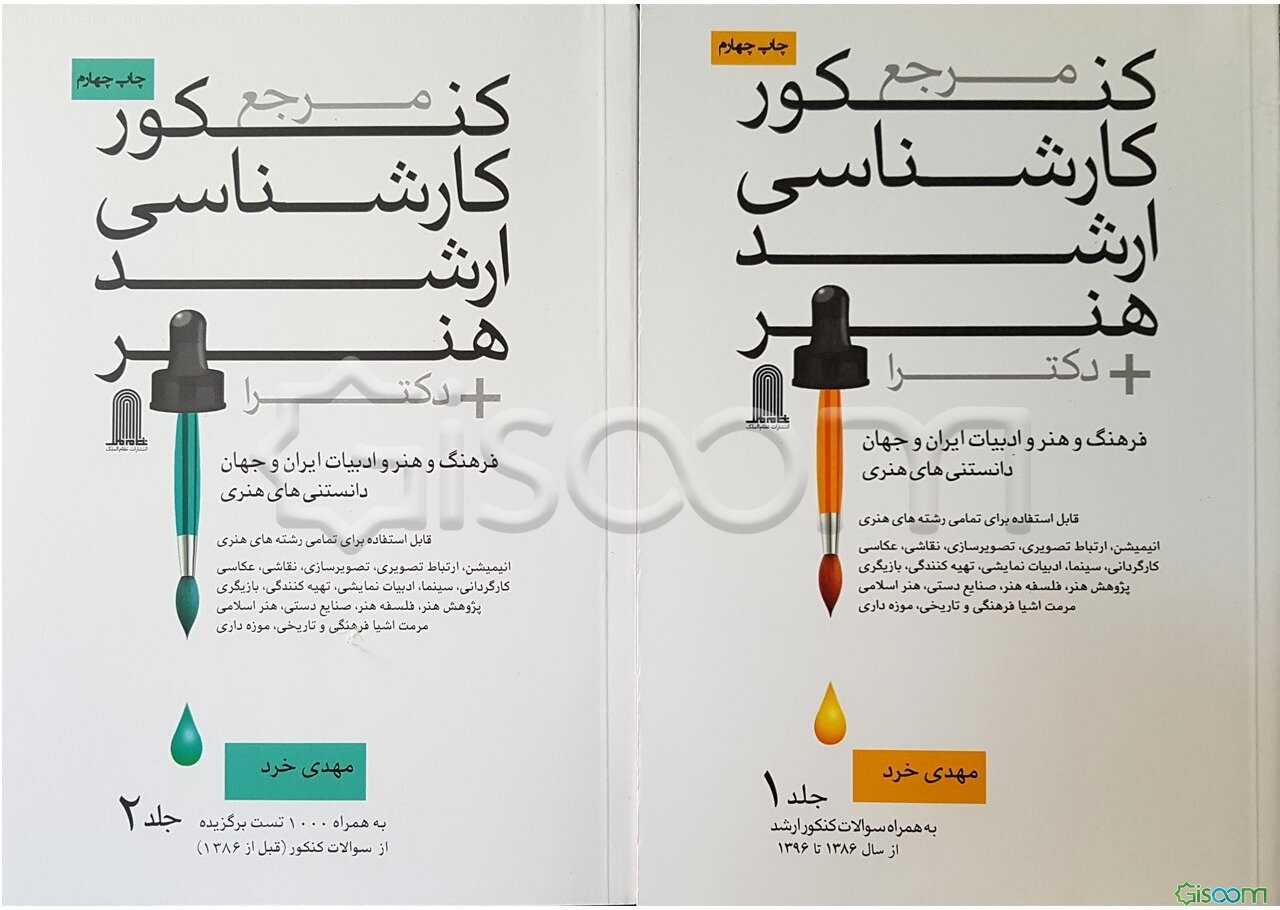 چاپ چهارم
مرجع
کنکور
کارشناسی
ارشد
هنر
+ دکترا
انتشارات نظام‌الملک
فرهنگ و هنر و ادبیات ایران و جهان
دانستنی های هنری
قابل استفاده برای تمامی رشته های هنری
انیمیشن، ارتباط تصویری، تصویرسازی، نقاشی، عکاسی
کارگردانی، سینما، ادبیات نمایشی، تهیه کنندگی، بازیگری
پژوهش هنر، فلسفه هنر، صنایع دستی، هنر اسلامی
مرمت اشیا فرهنگی و تاریخی، موزه داری
مهدی خرد
جلد ۱
به همراه سوالات کنکور ارشد
از سال ۱۳۸۶ تا ۱۳۹۶
چاپ چهارم
مرجع
کنکور
کارشناسی
ارشد
هنر
+ دکترا
انتشارات نظام‌الملک
فرهنگ و هنر و ادبیات ایران و جهان
دانستنی های هنری
قابل استفاده برای تمامی رشته های هنری
انیمیشن، ارتباط تصویری، تصویرسازی، نقاشی، عکاسی
کارگردانی، سینما، ادبیات نمایشی، تهیه کنندگی، بازیگری
پژوهش هنر، فلسفه هنر، صنایع دستی، هنر اسلامی
مرمت اشیا فرهنگی و تاریخی، موزه داری
مهدی خرد
جلد ۲
به همراه ۱۰۰۰ تست برگزیده
از سوالات کنکور (قبل از ۱۳۸۶)
Gisoom
Gisoom